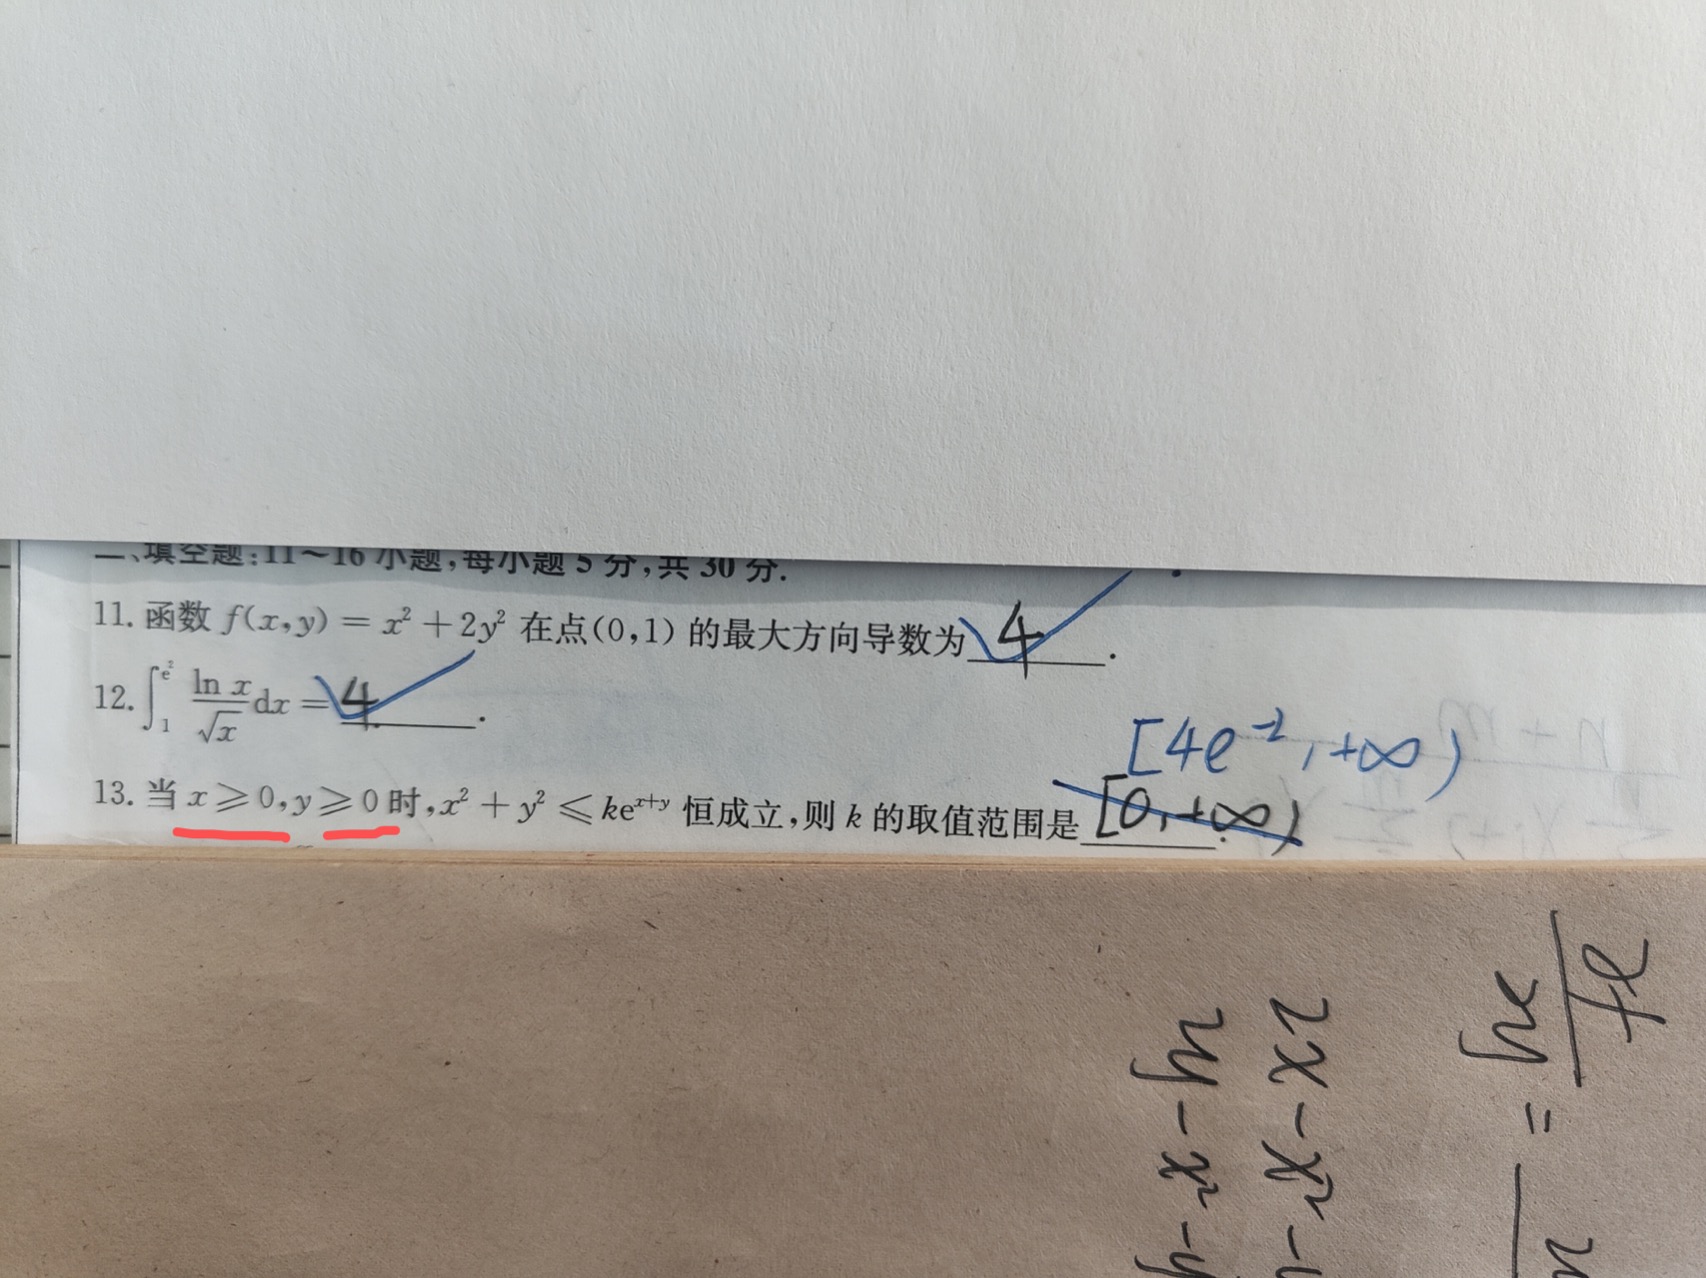 二、填空题:11~16小题,每小题5分,共30分.
11. 函数 f(x,y) = x² + 2y² 在点(0,1) 的最大方向导数为 4 .
12. ∫₁^{e²} ln x/√x dx = 4 .
[4e⁻², +∞)
13. 当 x ⩾ 0, y ⩾ 0 时, x² + y² ⩽ ke^{x+y} 恒成立, 则 k 的取值范围是 [0, +∞) .